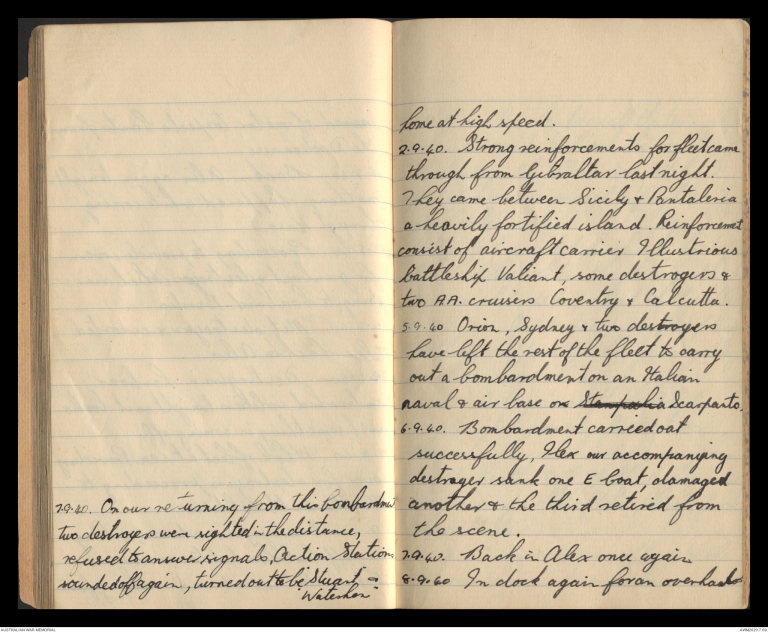 7.9.40. On our returning from this bombardment
two destroyers were sighted in the distance,
refused to answer signals, Action Stations
sounded off again, turned out to be Stuart &
Waterhen
home at high speed.
2.9.40. Strong reinforcements for fleet came
through from Gibraltar last night.
They came between Sicily & Pantaleria
a heavily fortified island. Reinforcements
consist of aircraft carrier Illustrious
battleship Valiant, some destroyers &
two A.A. cruisers Coventry & Calcutta.
5.9.40 Orion, Sydney & two destroyers
have left the rest of the fleet to carry
out a bombardment on an Italian
naval & air base on Stampalia Scarpanto.
6.9.40. Bombardment carried out
successfully, Ilex our accompanying
destroyer sank one E boat, damaged
another & the third retired from
the scene.
7.9.40. Back in Alex once again
8.9.40 In dock again for an overhaul
AUSTRALIAN WAR MEMORIAL